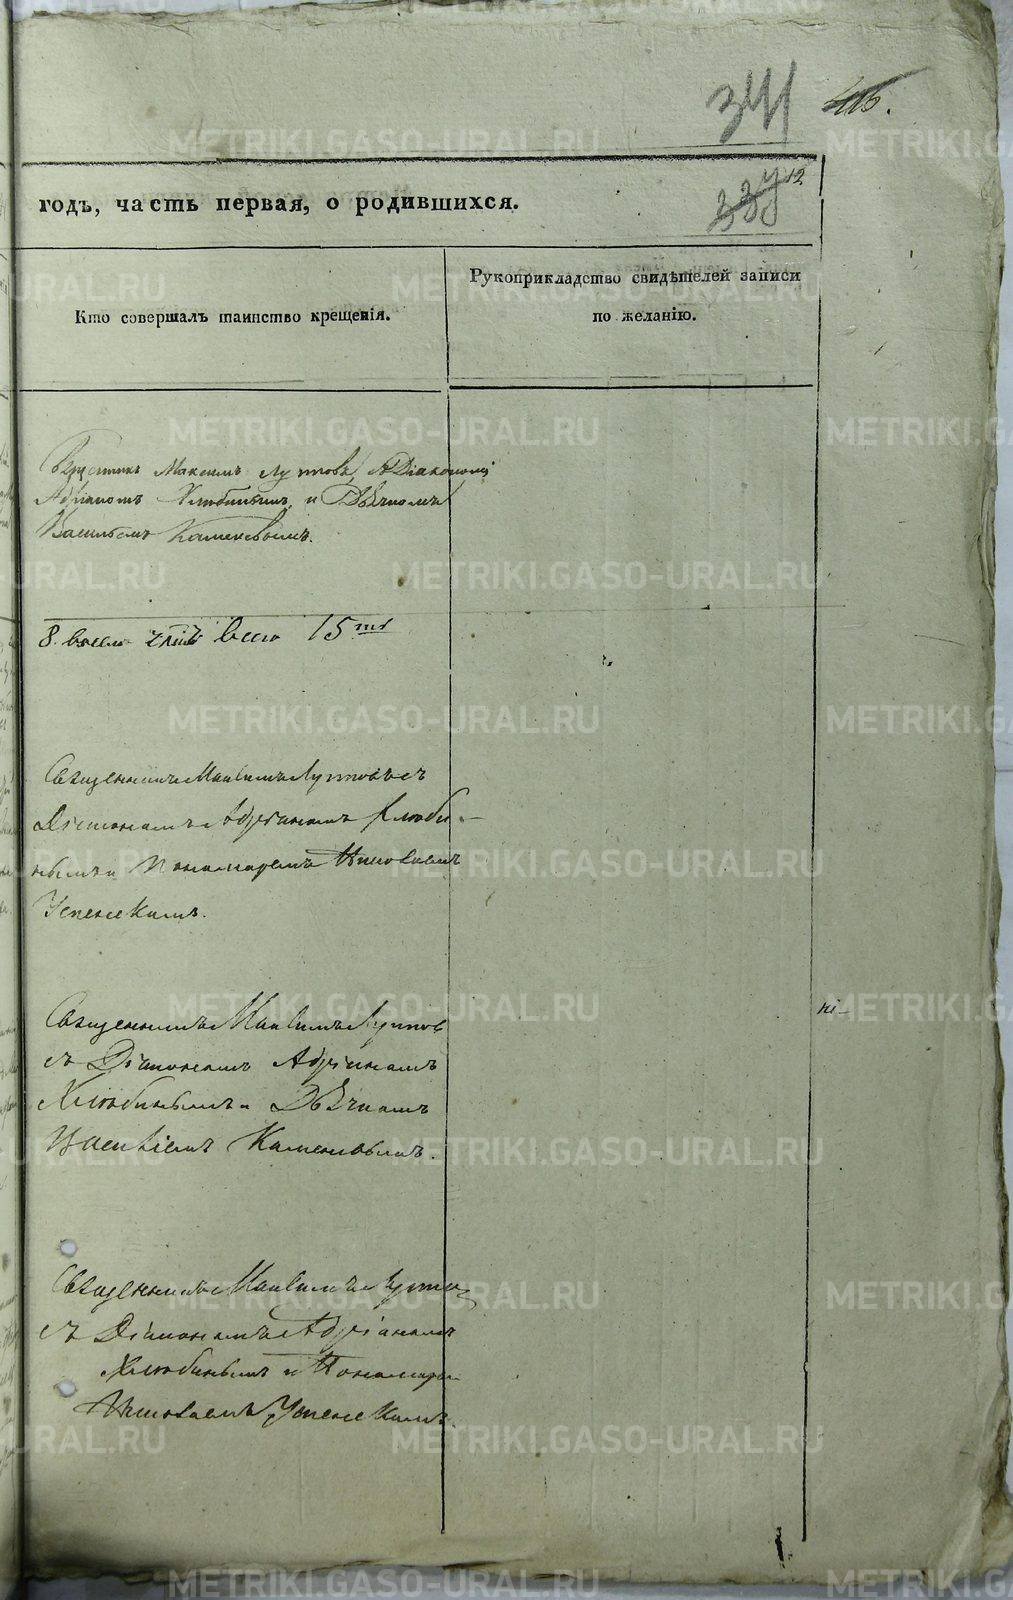 341
416.
337
12.
годъ, часть первая, о родившихся.
Кто совершалъ таинство крещенія.
Рукоприкладство свидѣтелей записи
по желанію.
Максимъ Лутовъ, съ Діакономъ
Адріаномъ Хлюбинымъ, и Дьячкомъ
Васильемъ Каменевымъ.
8. всего 15ть
Священникъ Максимъ Лутовъ съ
Діакономъ Адріаномъ Хлюби-
нымъ и Пономаремъ Николаемъ
Успенскимъ.
Священникъ Максимъ Лутовъ
съ Діакономъ Адріаномъ
Хлюбинымъ и Дьячкомъ
Васильемъ Каменевымъ.
Священникъ Максимъ Лутовъ
съ Діакономъ Адріаномъ
Хлюбинымъ и Пономаремъ
Николаемъ Успенскимъ.
METRIKI.GASO-URAL.RU